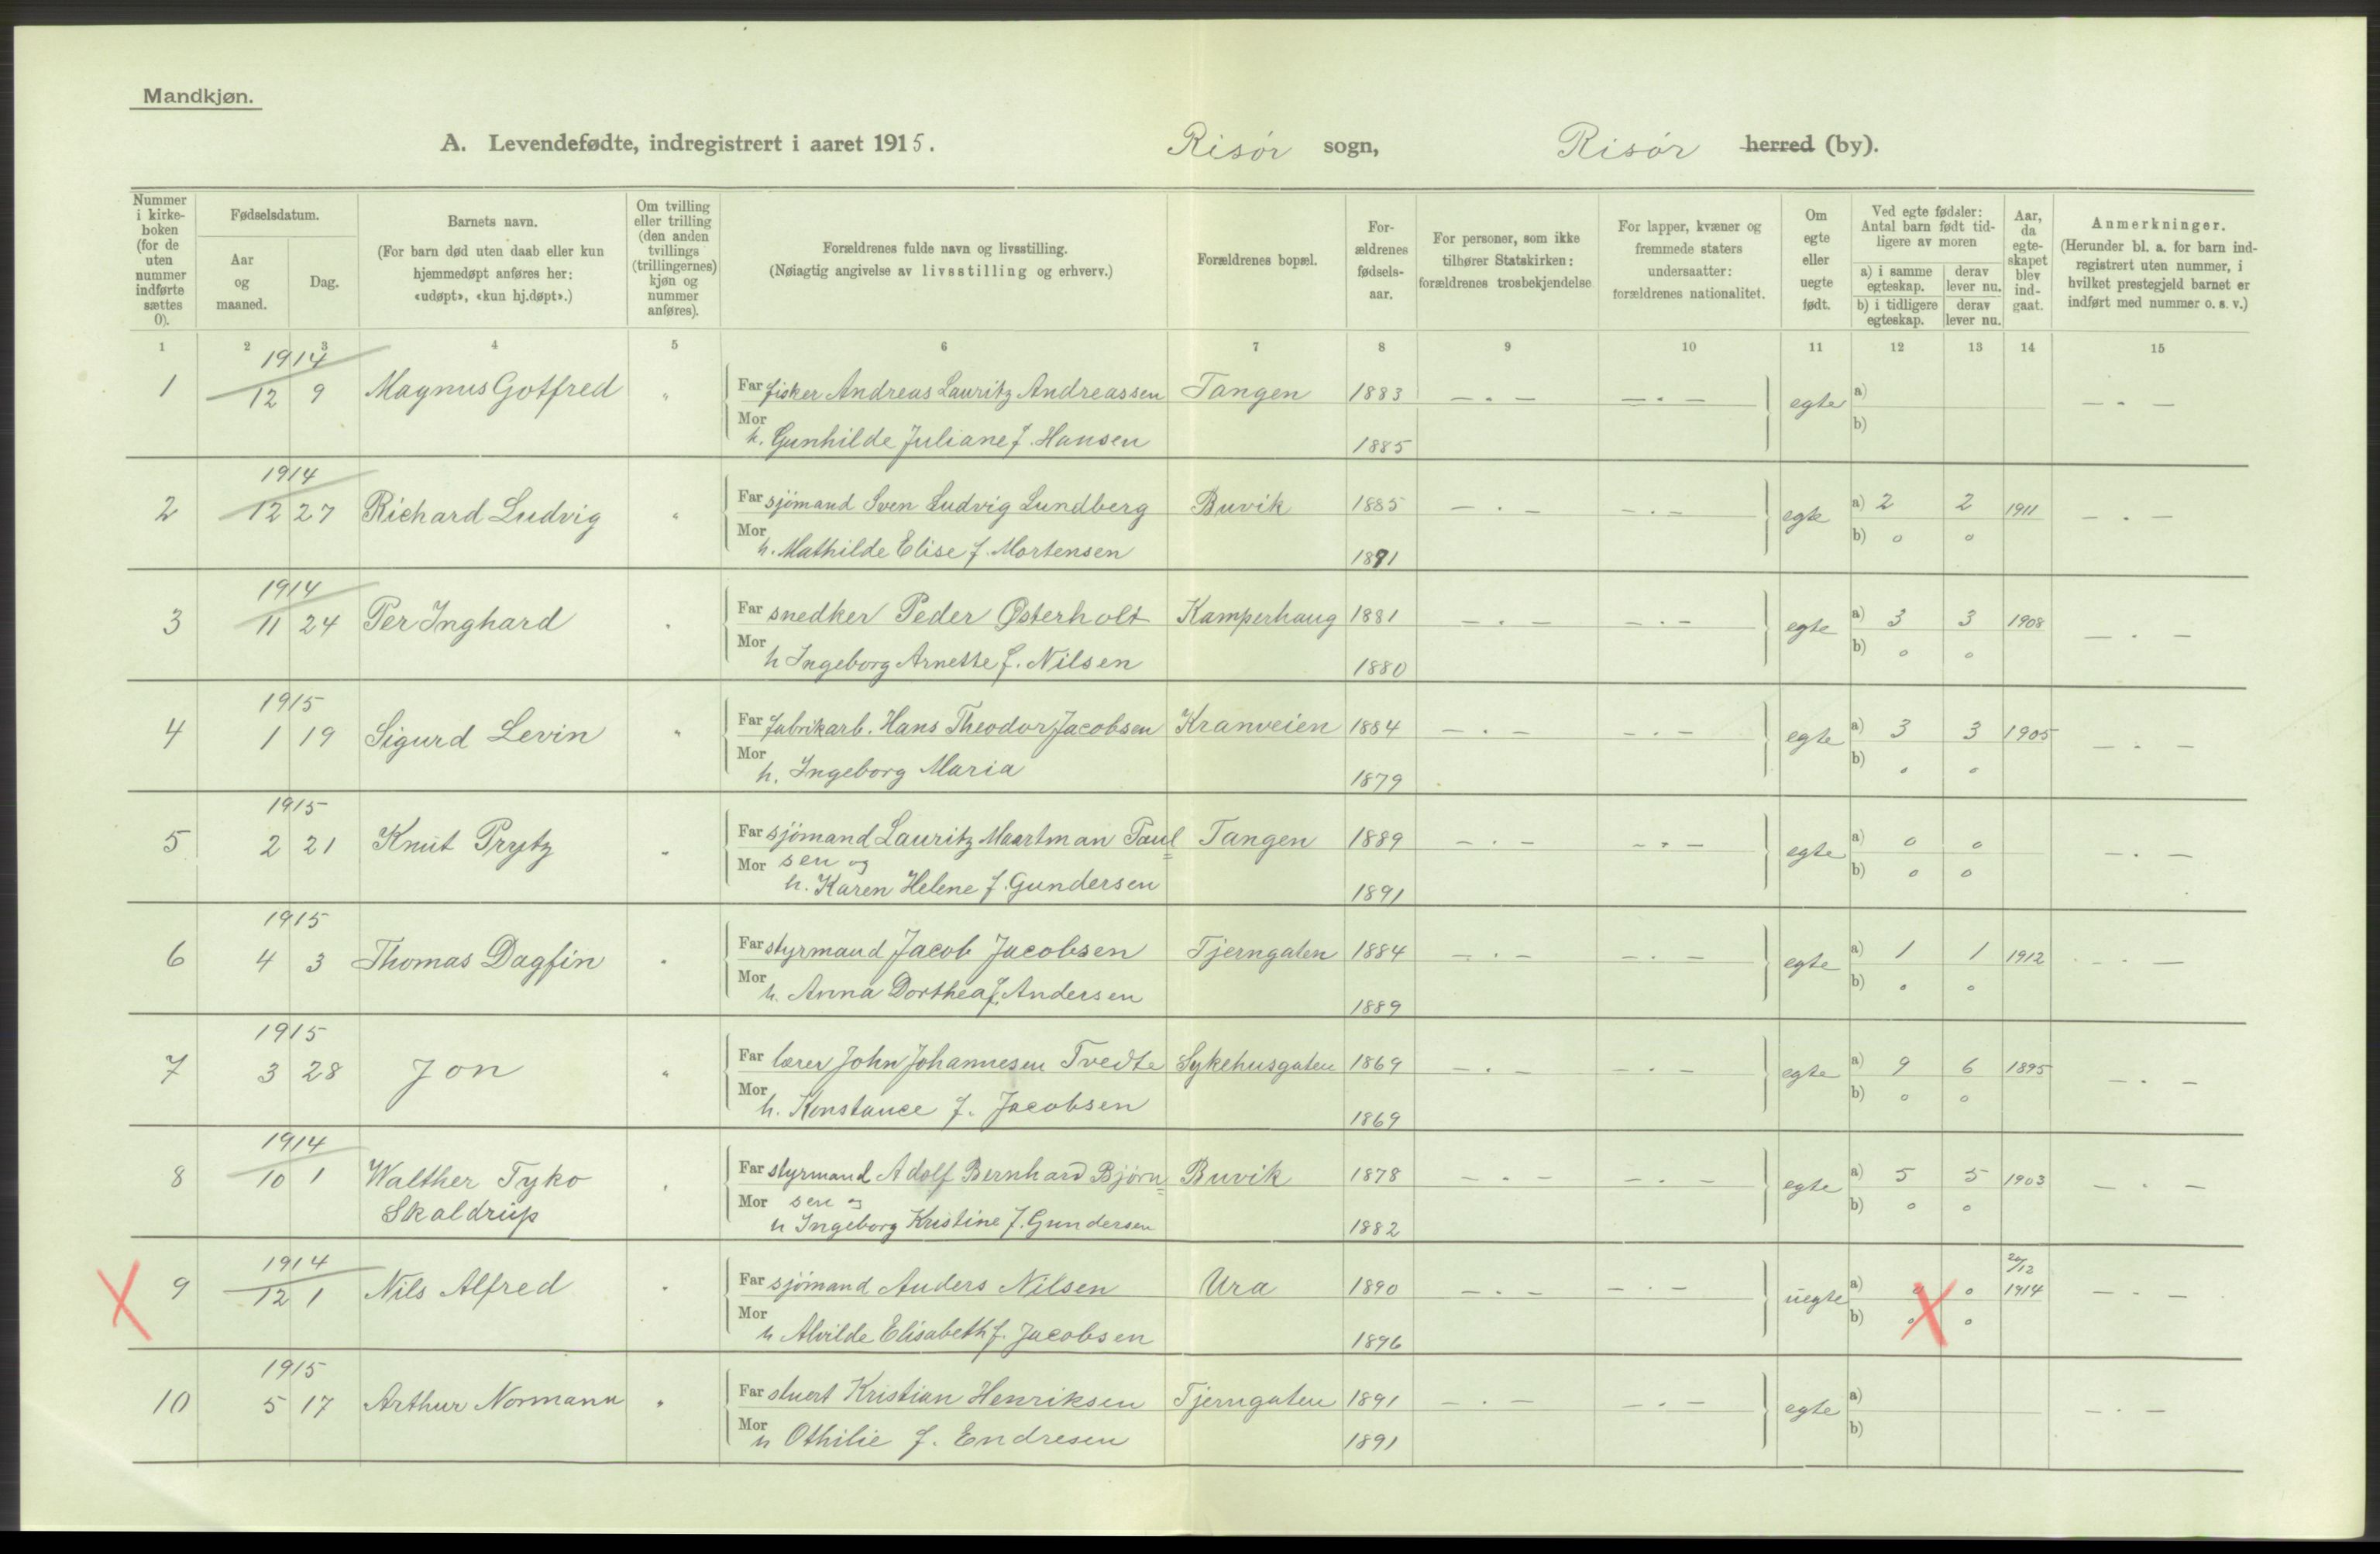 Mandkjøn.
A. Levendefødte, indregistrert i aaret 1915. Risör sogn, Risör herred (by).
Nummer i kirkeboken (for de uten nummer indførte sættes 0).
Fødselsdatum.
Aar og maaned.
Dag.
Barnets navn.
(For barn død uten daab eller kun hjemmedøpt anføres her: «udøpt», «kun hj.døpt».)
Om tvilling eller trilling (den anden tvillings (trillingernes) kjøn og nummer anføres).
Forældrenes fulde navn og livsstilling.
(Nøiagtig angivelse av livsstilling og erhverv.)
Forældrenes bopæl.
Forældrenes fødselsaar.
For personer, som ikke tilhører Statskirken: forældrenes trosbekjendelse
For lapper, kvæner og fremmede staters undersaatter: forældrenes nationalitet.
Om egte eller uegte født.
Ved egte fødsler: Antal barn født tidligere av moren
a) i samme egteskap. derav lever nu.
b) i tidligere egteskap. derav lever nu.
Aar, da egteskapet blev indgaat.
Anmerkninger.
(Herunder bl. a. for barn indregistrert uten nummer, i hvilket prestegjeld barnet er indført med nummer o. s. v.)
1 2 3 4 5 6 7 8 9 10 11 12 13 14 15
1914
1 12 9 Magnus Gotfred " Far fisker Andreas Lauritz Andreassen Tangen 1883 — . — — . — egte a) — . —
Mor h. Gunhilde Juliane f. Hansen 1885 b)
1914
2 12 27 Richard Ludvig " Far sjömand Sven Ludvig Lundberg Buvik 1885 — . — — . — egte a) 2 2 1911 — . —
Mor h. Mathilde Elise f. Mortensen 1891 b) 0 0
1914
3 11 24 Per Inghard " Far snedker Peder Østerholt Kamperhaug 1881 — . — — . — egte a) 3 3 1908 — . —
Mor h Ingeborg Arnette f. Nilsen 1880 b) 0 0
1915
4 1 19 Sigurd Levin " Far fabrikarb. Hans Theodor Jacobsen Kranveien 1884 — . — — . — egte a) 3 3 1905 — . —
Mor h. Ingeborg Maria 1879 b) 0 0
1915
5 2 21 Knut Prytz " Far sjömand Lauritz Maartman Paul= Tangen 1889 — . — — . — egte a) 0 0 — . —
Mor sen og
h. Karen Helene f. Gundersen 1891 b) 0 0
1915
6 4 3 Thomas Dagfin " Far styrmand Jacob Jacobsen Tjerngaten 1884 — . — — . — egte a) 1 1 1912 — . —
Mor h. Anna Dorthea f. Andersen 1889 b) 0 0
1915
7 3 28 Jon " Far lærer John Johannesen Tvedte Sykehusgaten 1869 — . — — . — egte a) 9 6 1895 — . —
Mor h. Konstance f. Jacobsen 1869 b) 0 0
1914
8 10 1 Walther Tyko " Far styrmand Adolf Bernhard Bjørn= Buvik 1878 — . — — . — egte a) 5 5 1903 — . —
Skaldrup Mor sen og
h Ingeborg Kristine f. Gundersen 1882 b) 0 0
1914 20/12
X 9 12 1 Nils Alfred " Far sjömand Anders Nilsen Ura 1890 — . — — . — uegte a) 0 0 1914 — . —
Mor h Alvilde Elisabeth f. Jacobsen 1896 b) 0 X 0
1915
10 5 17 Arthur Normann " Far stuert Kristian Henriksen Tjerngaten 1891 — . — — . — egte a) — . —
Mor h Othilie f. Endresen 1891 b)